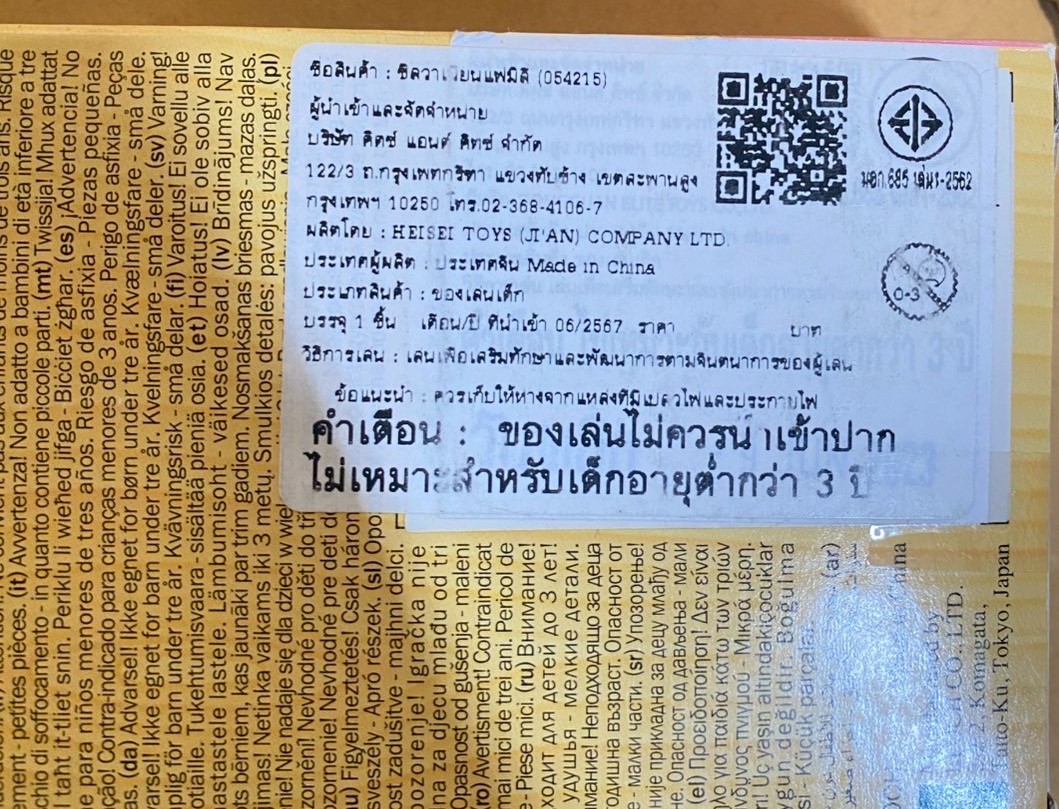 ชื่อสินค้า : ซิลวาเนียนแฟมิลี่ (054215)
ผู้นำเข้าและจัดจำหน่าย
บริษัท คิดซ์ แอนด์ คิตซ์ จำกัด
122/3 ถ.กรุงเทพกรีฑา แขวงทับช้าง เขตสะพานสูง
กรุงเทพฯ 10250 โทร.02-368-4106-7
ผลิตโดย : HEISEI TOYS (JI'AN) COMPANY LTD.
ประเทศผู้ผลิต : ประเทศจีน Made in China
ประเภทสินค้า : ของเล่นเด็ก
บรรจุ 1 ชิ้น เดือน/ปี ที่นำเข้า 06/2567 ราคา บาท
วิธีการเล่น : เล่นเพื่อเสริมทักษาและพัฒนาการตามจินตนาการของผู้เล่น
ข้อแนะนำ : ควรเก็บให้ห่างจากแหล่งที่มีเปลวไฟและประกายไฟ
คำเตือน : ของเล่นไม่ควรนำเข้าปาก
ไม่เหมาะสำหรับเด็กอายุต่ำกว่า 3 ปี
มอก.685 เล่ม1-2562
0-3
dement - petites pièces. (it) Avvertenza! Non adatto a bambini di età inferiore a tre
chio di soffocamento - in quanto contiene piccole parti. (mt) Twissija! Mhux adattat
l taħt it-tliet snin. Periklu li wieħed jifga - Bicciet żgħar. (es) ¡Advertencia! No
e para niños menores de tres años. Riesgo de asfixia - Piezas pequeñas.
ução! Contra-indicado para crianças menores de 3 anos. Perigo de asfixia - Peças
as. (da) Advarsel! Ikke egnet for børn under tre år. Kvælningsfare - små dele.
varsel! Ikke egnet for barn under tre år. Kvelningsfare - små deler. (sv) Varning!
plig för barn under tre år. Kvävningsrisk - små delar. (fi) Varoitus! Ei sovellu alle
otiaille. Tukehtumisvaara - sisältää pieniä osia. (et) Hoiatus! Ei ole sobiv alla
bastastele lastele. Lämbumisoht - väikesed osad. (lv) Brīdinājums! Nav
ts bērniem, kas jaunāki par trim gadiem. Nosmakšanas briesmas - mazas daļas.
jimas! Netinka vaikams iki 3 metų. Smulkios detalės: pavojus užspringti. (pl)
nie! Nie nadaje się dla dzieci w wie
zornění! Nevhodné pro děti do tř
ozornenie! Nevhodné pre deti d
hu) Figyelmeztetés! Csak háron
sveszély - Apró részek. (sl) Opo
ost zadušitve - majhni delci.
pozorenje! Igračka nije
na za djecu mlađu od tri
Opasnost od gušenja - maleni
(ro) Avertisment! Contraindicat
mai mici de trei ani. Pericol de
e - Piese mici. (ru) Внимание!
ходит для детей до 3 лет!
удушья - мелкие детали.
имание! Неподходящо за деца
годишна възраст. Опасност от
е - малки части. (sr) Упозорење!
није прикладна за децу млађу од
не. Опасност од дављења - мали
(el) Προειδοποίηση! Δεν είναι
ηλο για παιδιά κάτω των τριών
ίνδυνος πνιγμού - Μικρά μέρη.
rı! Üç yaşın altındaki çocuklar
ygun değildir. Boğulma
si - Küçük parçalar.
(ar)
CO., LTD.
Komagata,
Taito-Ku, Tokyo, Japan